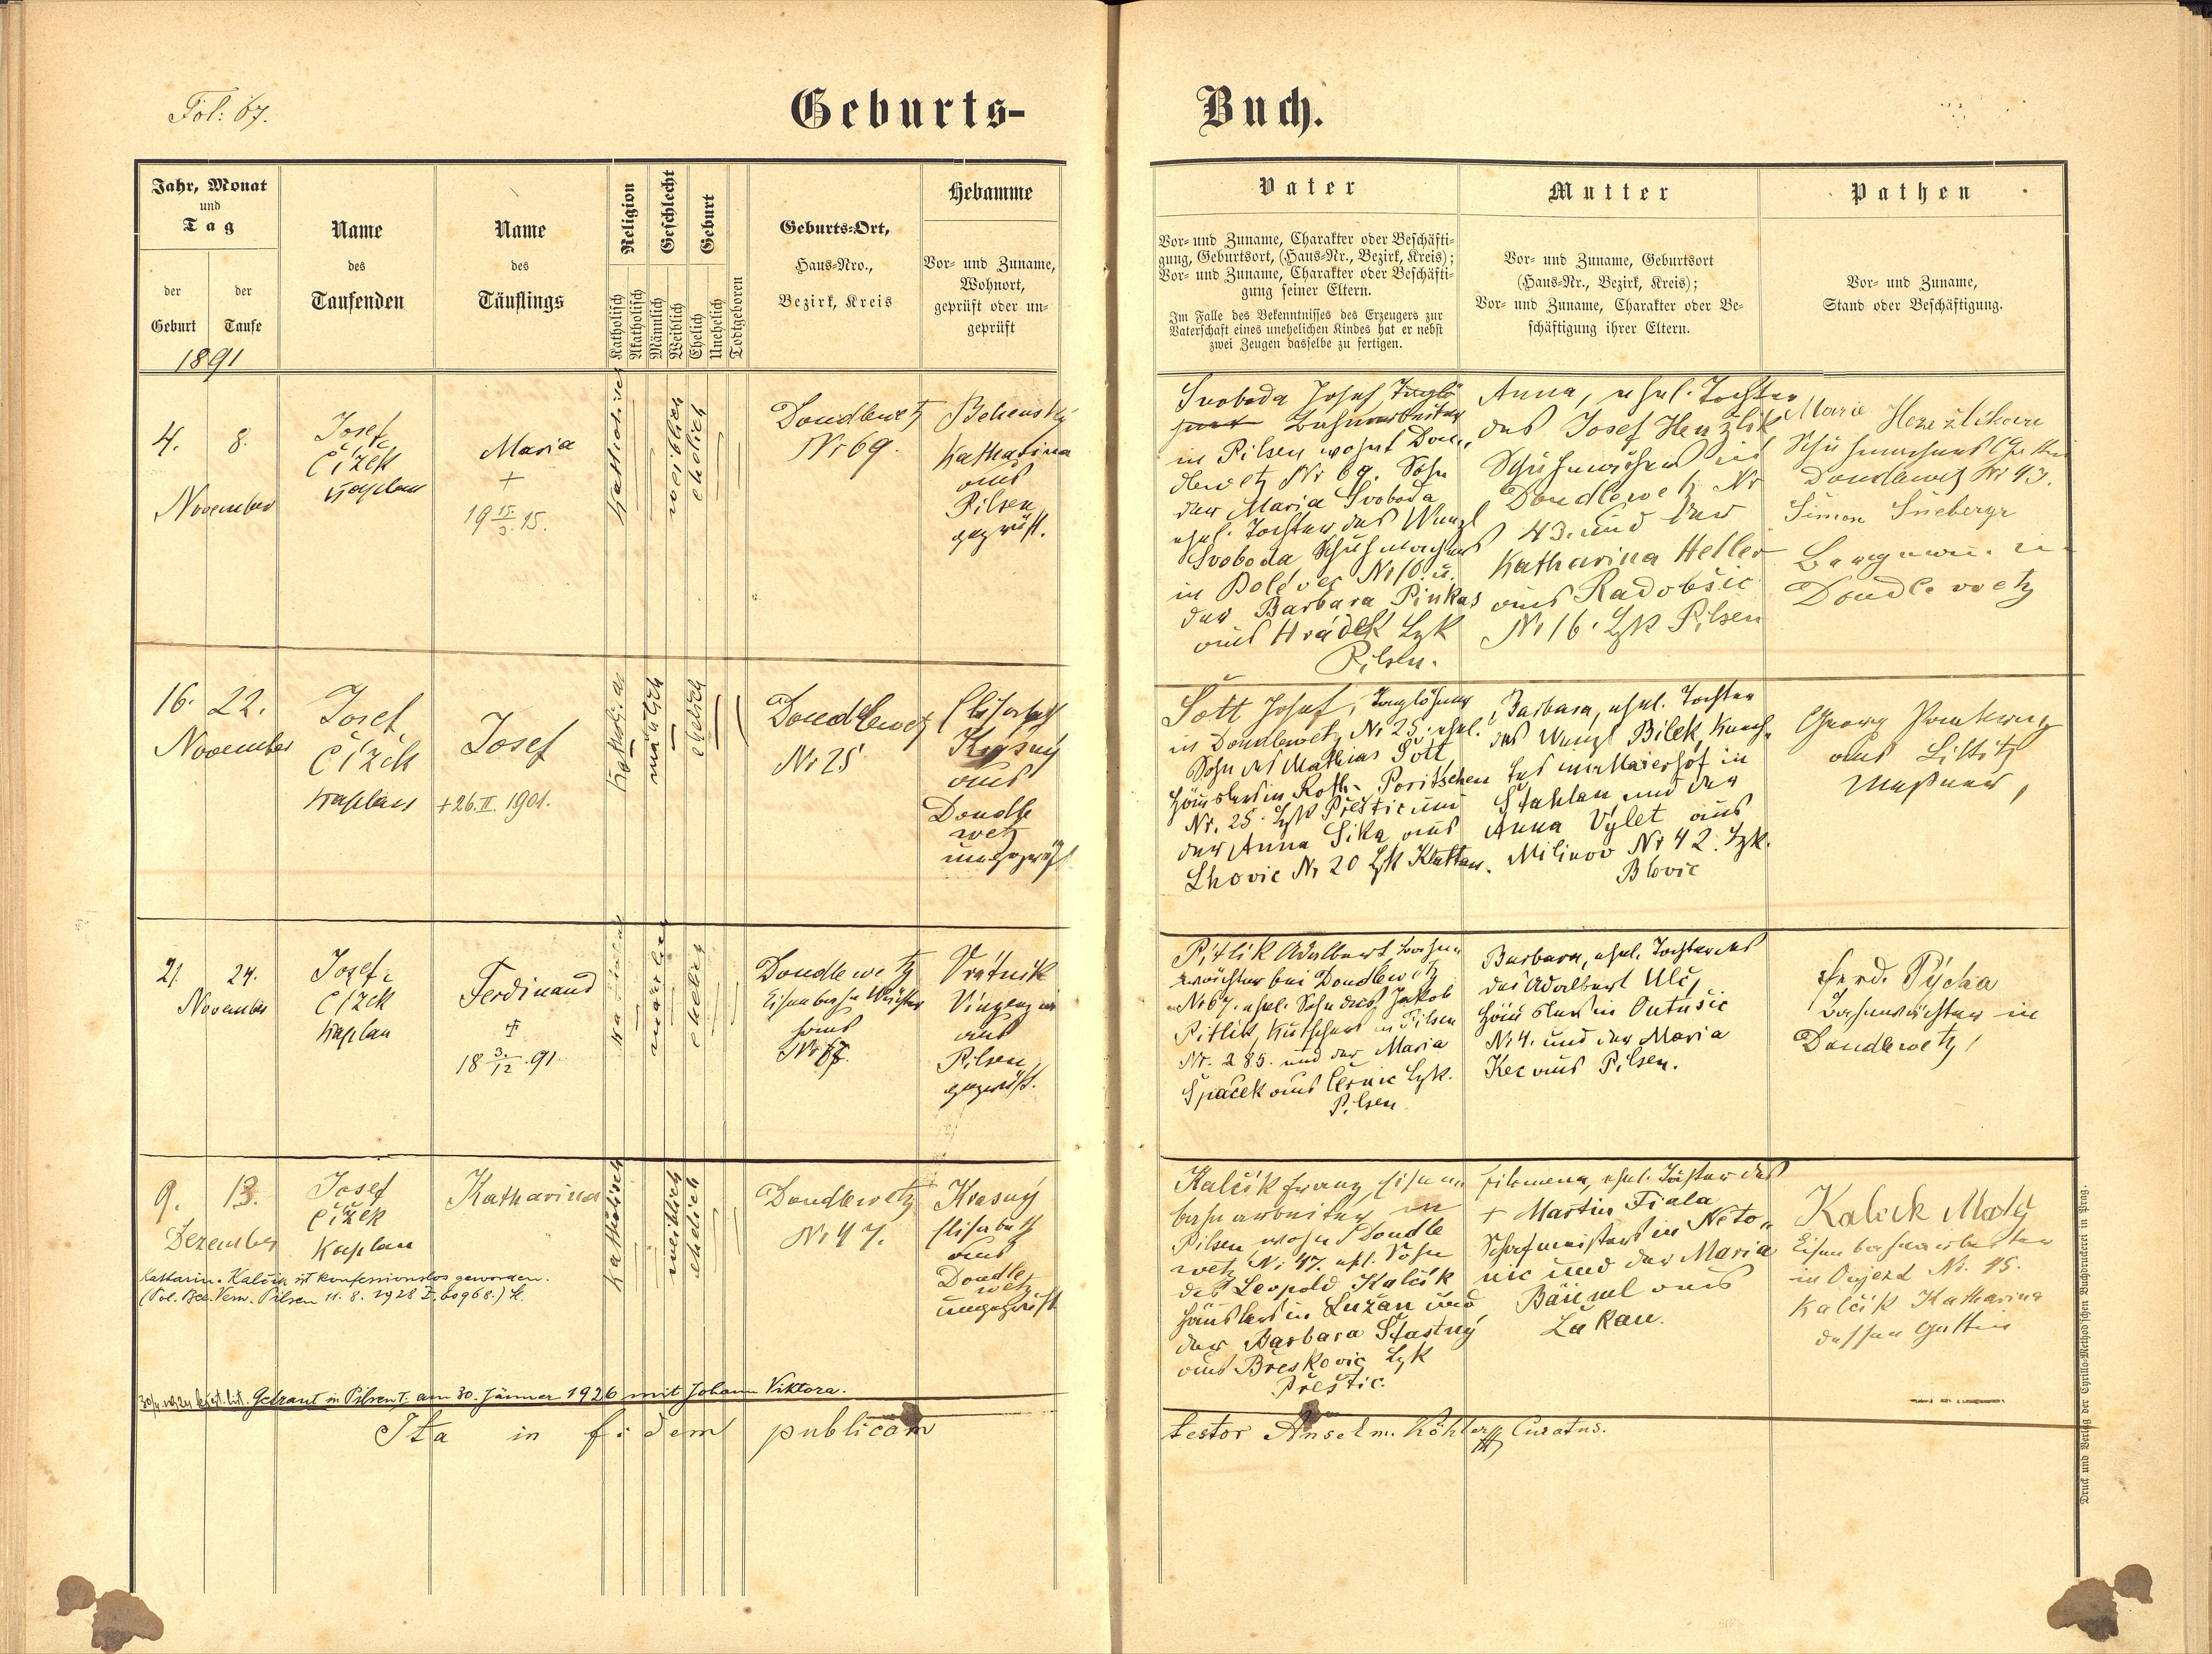 Fol: 67.
Geburts-
Buch.
Jahr, Monat
und
Tag
der
Geburt
der
Taufe
1891
Name
des
Taufenden
Name
des
Täuflings
Religion
Katholisch
Akatholisch
Geschlecht
Männlich
Weiblich
Geburt
Ehelich
Unehelich
Todtgeboren
Geburts-Ort,
Haus-Nro.,
Bezirk, Kreis
Hebamme
Vor- und Zuname,
Wohnort,
geprüft oder un-
geprüft
Vater
Vor- und Zuname, Charakter oder Beschäfti-
gung, Geburtsort, (Haus-Nr., Bezirk, Kreis);
Vor- und Zuname, Charakter oder Beschäfti-
gung seiner Eltern.
Im Falle des Bekenntnisses des Erzeugers zur
Vaterschaft eines unehelichen Kindes hat er nebst
zwei Zeugen dasselbe zu fertigen.
Mutter
Vor- und Zuname, Geburtsort
(Haus-Nr., Bezirk, Kreis);
Vor- und Zuname, Charakter oder Be-
schäftigung ihrer Eltern.
Pathen
Vor- und Zuname,
Stand oder Beschäftigung.
4. 8.
November
Josef
Čížek
Kaplan
Maria
+
19 15./3. 15.
Katholisch
weiblich
ehelich
Doudlewetz
Nr 69.
Katharina
aus
Pilsen
geprüft.
Svoboda Josef, Taglö
Bahnarbeiter
in Pilsen wohnt Dou„
dlewetz Nr 69. Sohn
der Maria Svoboda
ehel. Tochter des Wenzl
Svoboda Schuhmachers
in Bolevec Nr 10 u.
der Barbara Pinkas
aus Hrádek Bzk
Pilsen.
Anna, ehel. Tochter
des Josef Henzlik
in
Doudlewetz Nr
43. und der
Katharina Heller
aus Radobšic
Nr 16. Bzk Pilsen
Marie Henzlikova
Doudlewetz Nr 43.
Simon
Doudlewetz
16. 22.
November
Josef
Čížek
Kaplan
Josef
+ 26. II. 1901.
männlich
ehelich
Doudlewetz
Nr 25
Elisabeth
Krasný
aus
Doudle
wetz
ungeprüft
Šott Josef, Taglöhner
in Doudlewetz Nr 25. ehel.
Sohn des Mathias Šott,
Häuslers in Roth- Poritschen
Nr. 25. Bzk Přestic und
der Anna Sika aus
Lhovic Nr 20 Bzk Klattau.
Barbara, ehel. Tochter
des Wenzl Bilek, Knech„
tes im Maierhof in
Stahlau und der
Anna Vylet aus
Milinov Nr 42. Bzk.
Blovic
Georg
aus Littitz
21. 24.
November
Josef
Čížek
Kaplan
Ferdinand
+
18 3./12. 91.
männlich
ehelich
Doudlewetz
Eisenbahn Wächter
haus
Nr 67.
Vrátnik
aus
Pilsen,
geprüft.
Pitlik Adalbert, Bahn„
wächter bei Doudlewetz
Nr 67. ehel. Sohn des Jakob
Pitlik, Kutschers in Pilsen
Nr. 285. und der Maria
Špaček aus Černic Bzk.
Pilsen
Barbara, ehel. Tochter des
des Adalbert Ulč,
Häuslers in Outušic
Nr 4. und der Maria
Kec aus Pilsen.
Ferd. Pýcha
Bahnwächter in
Doudlewetz
9. 13.
Dezember
Josef
Čížek
Kaplan
Katharina
Katholisch
weiblich
ehelich
Doudlewetz
Nr 47.
Krasný
Elisabeth
aus
Doudle
wetz
ungeprüft
Kalčik Franz, Eisen„
bahnarbeiter in
Pilsen wohnt Doudle
wetz Nr 47. ehl. Sohn
des Leopold Kalčik
Häuslers in Lužan und
der Barbara Štastný
aus Breskovic Bzk
Přeštic.
Filomena, ehel. Tochter des
+ Martin Fiala
Schafmeisters in Neto„
nic und der Maria
Bäuml aus
Lukau.
Kalčik
Eisenbahnarbeiter
in Aujezd Nr. 15.
Kalčik Katharina
dessen Gattin
Katharina Kalčik ist konfessionslos geworden.
(Pol. Bez. Verw. Pilsen 11. 8. 1928 Z. 60968.)
Getraut in Pilsen T. am 30. Jänner 1926 mit Johann Viktora.
Ita in fidem publicam
testor Anselm. Köhler Curatus.
Druck und Verlag der Cyrillo-Method'schen Buchdruckerei in Prag.